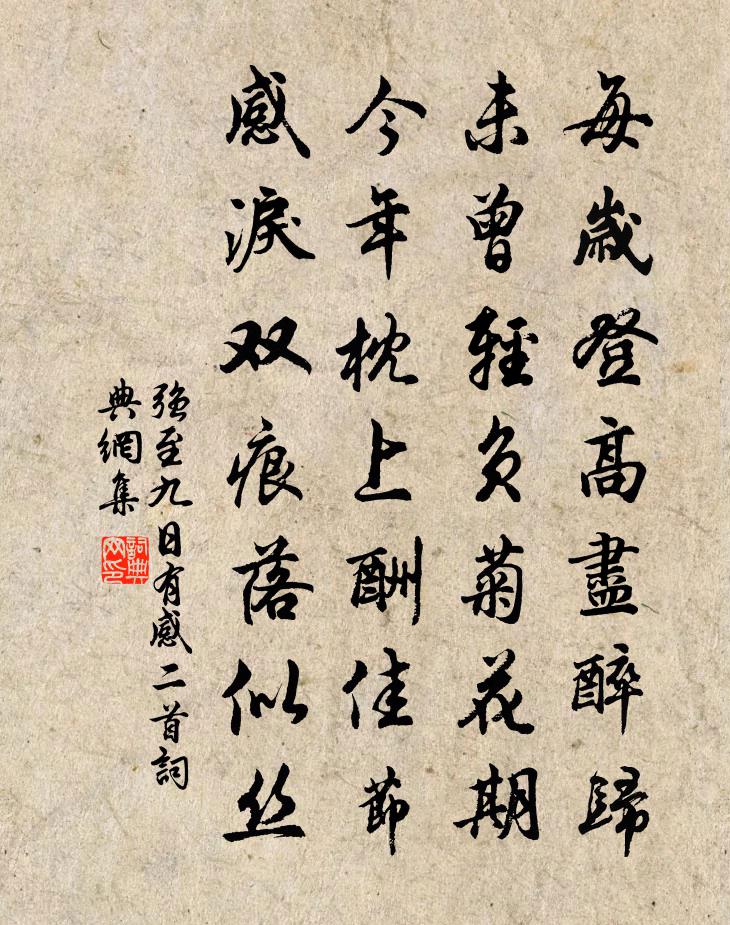 每歲登高盡醉歸
未曾輕負菊花期
今年枕上酬佳節
感淚双痕落似丝
強至九日有感二首詞
典網集
詞典
网印